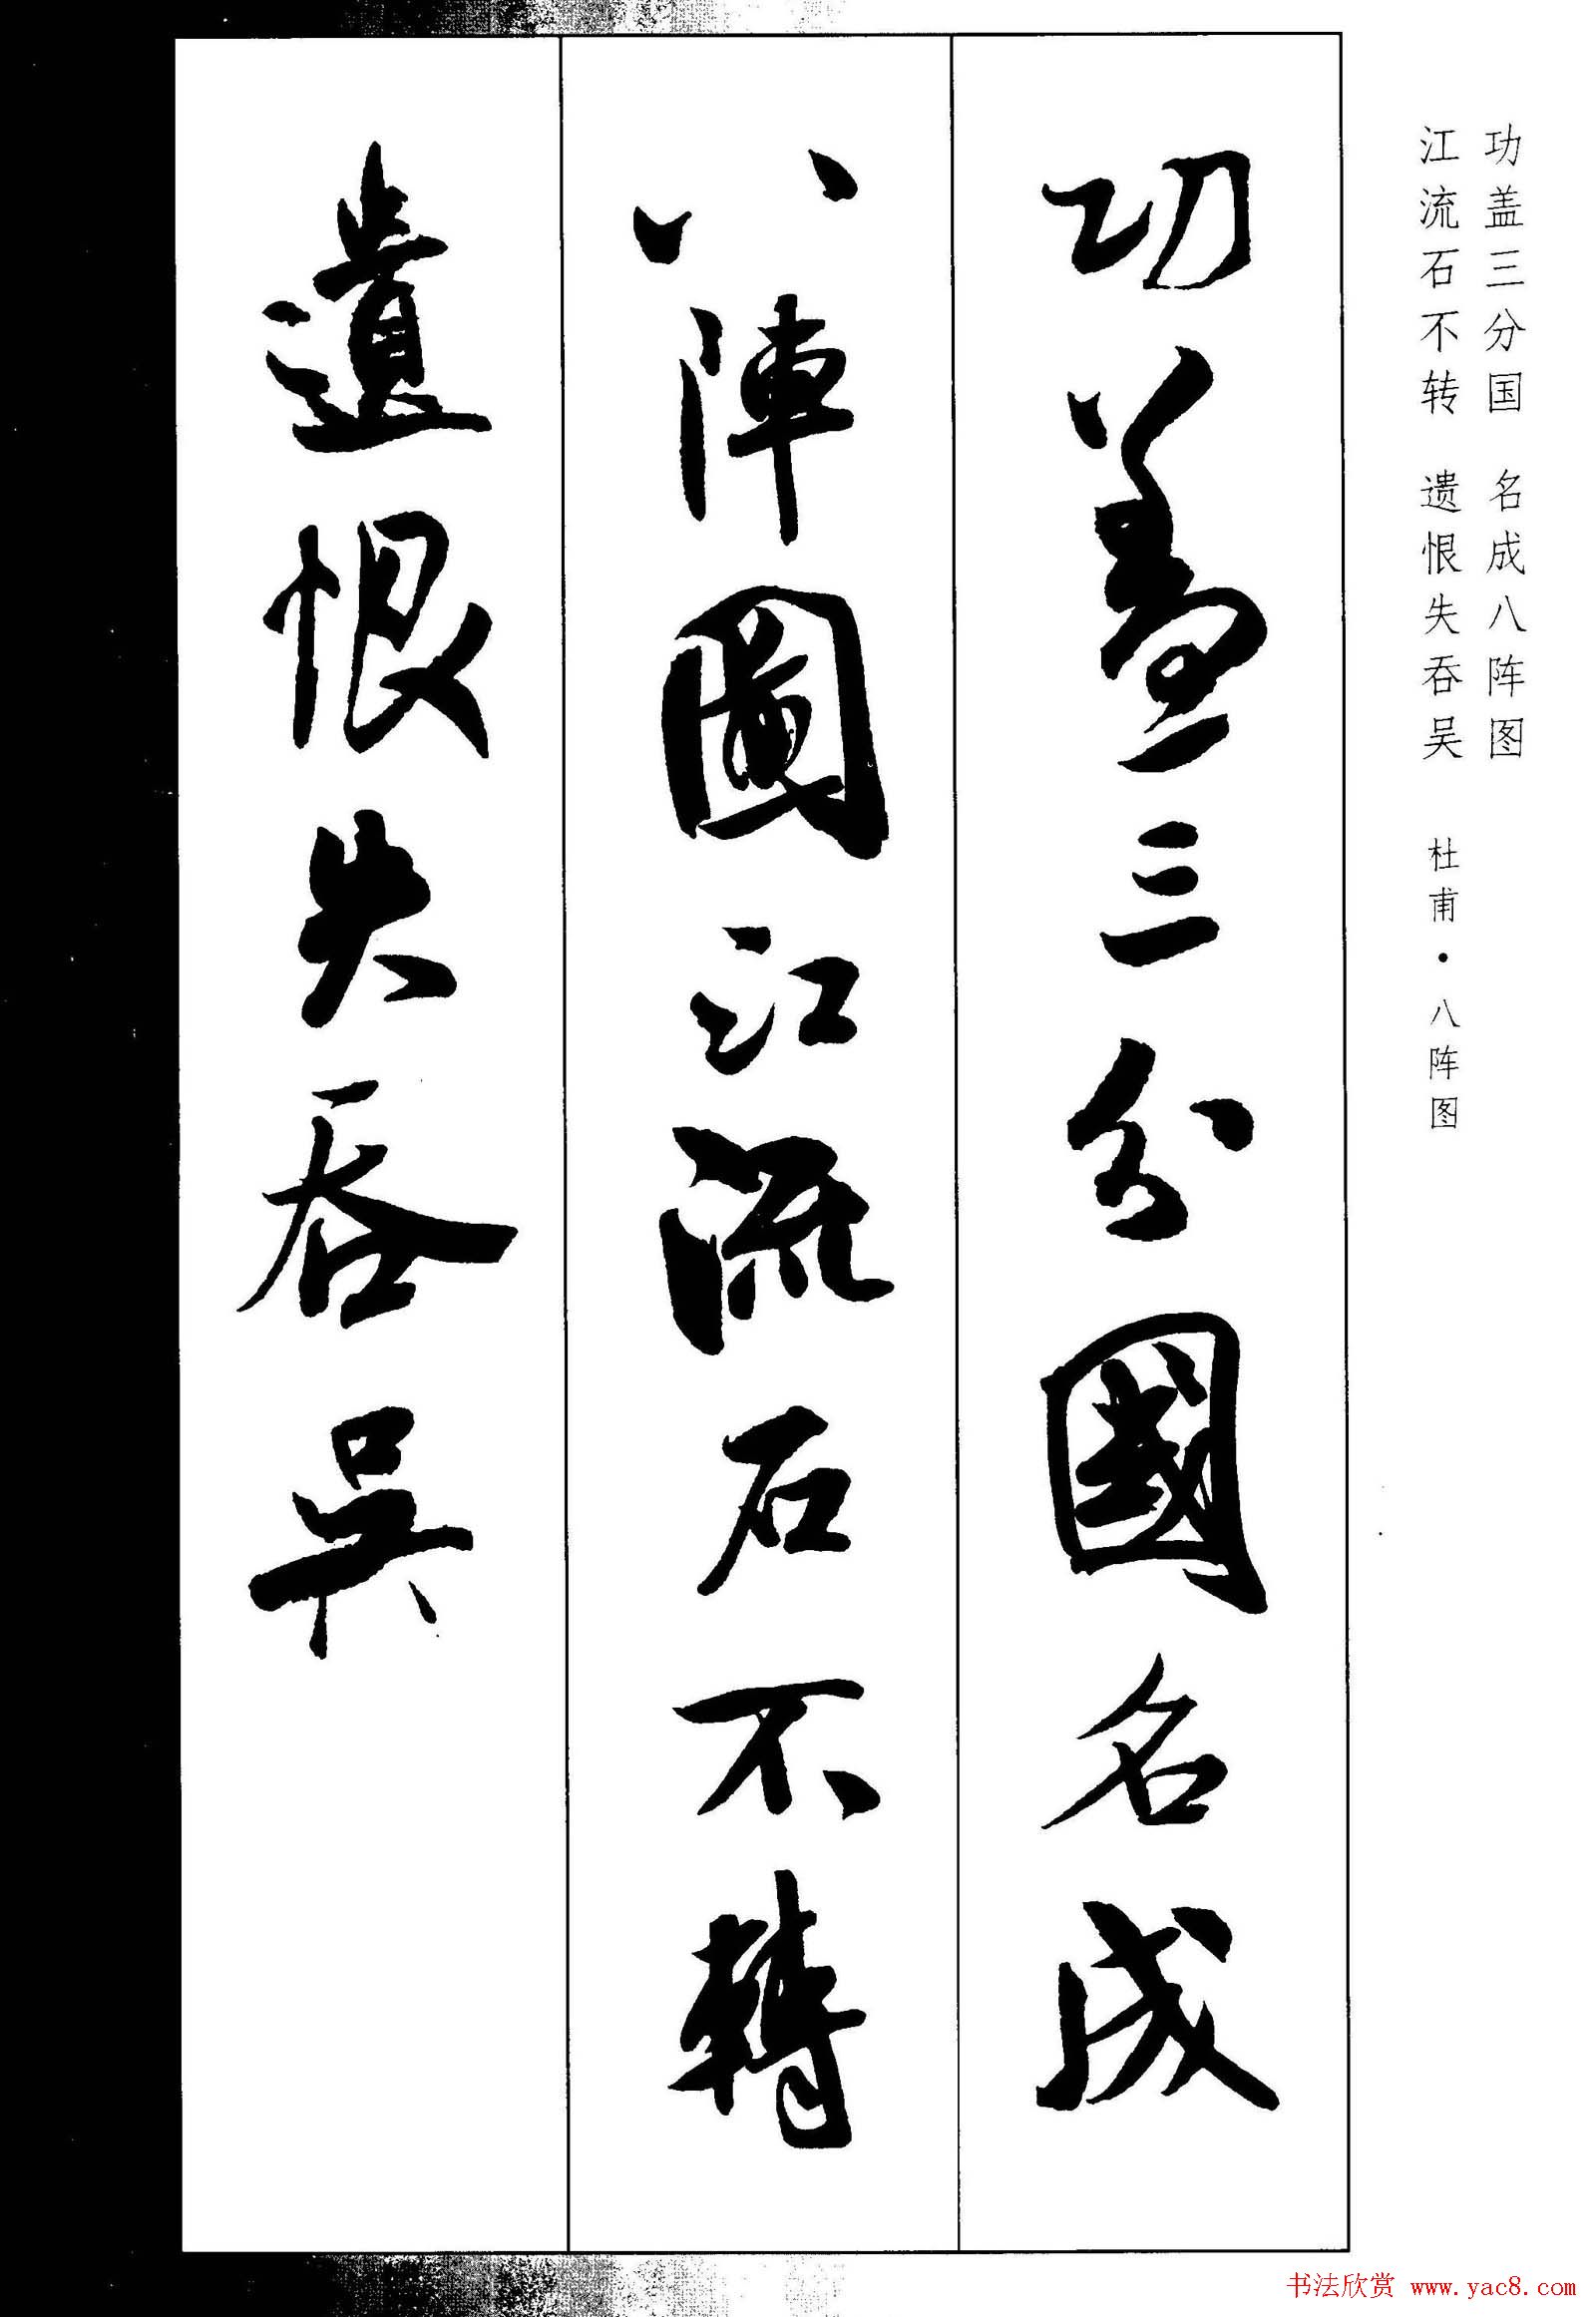 功盖三分国 名成八阵图
江流石不转 遗恨失吞吴 杜甫·八阵图
功蓋三分國名成
八陣圖江流石不轉
遺恨失吞吳
书法欣赏 www.yac8.com